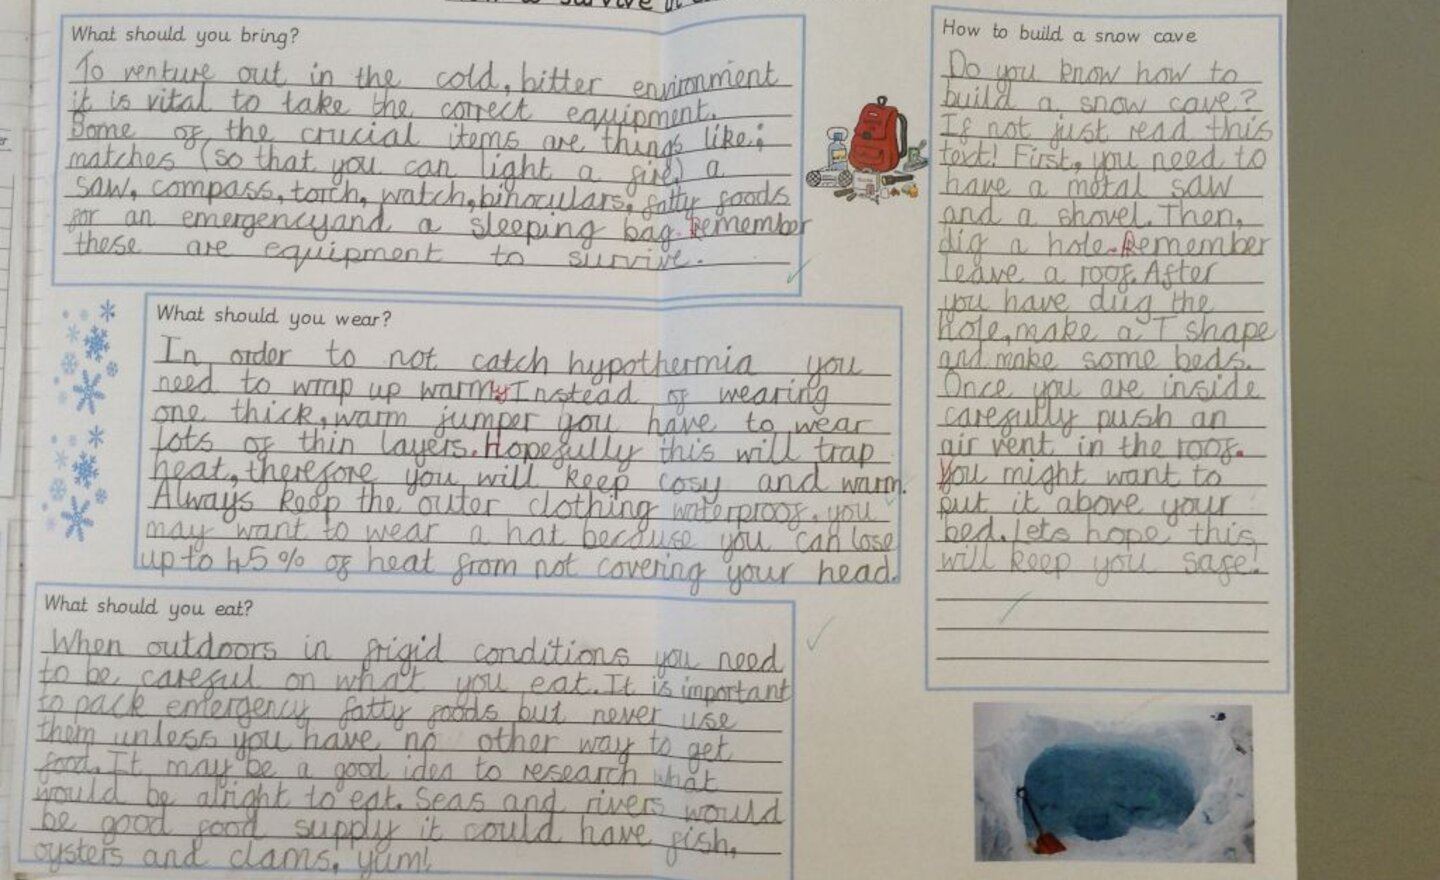 to survive
What should you bring?
To venture out in the cold, bitter environment
it is vital to take the correct equipment.
Some of the crucial items are things like;
matches (so that you can light a fire) a
saw, compass, torch, watch, binoculars, fatty foods
for an emergency and a sleeping bag. Remember
these are equipment to survive.
What should you wear?
In order to not catch hypothermia you
need to wrap up warm. Instead of wearing
one thick, warm jumper you have to wear
lots of thin layers. Hopefully this will trap
heat, therefore you will keep cosy and warm.
Always keep the outer clothing waterproof. you
may want to wear a hat because you can lose
up to 45% of heat from not covering your head.
What should you eat?
When outdoors in frigid conditions you need
to be careful on what you eat. It is important
to pack emergency fatty foods but never use
them unless you have no other way to get
food. It may be a good idea to research what
would be alright to eat. Seas and rivers would
be good food supply it could have fish,
oysters and clams, yum!
How to build a snow cave
Do you know how to
build a snow cave?
If not just read this
text! First, you need to
have a metal saw
and a shovel. Then,
dig a hole. Remember
leave a roof. After
you have dug the
hole, make a T shape
and make some beds.
Once you are inside
carefully push an
air vent in the roof.
You might want to
put it above your
bed. Lets hope this
will keep you safe!